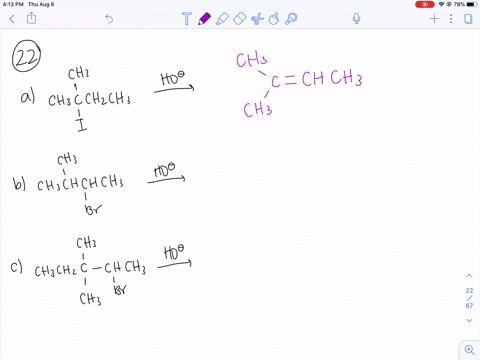 4:13 PM Thu Aug 6
78%
22
CH3
CH3CCH2CH3
I
a)
HO⊖
CH3
C=CHCH3
CH3
b)
CH3
CH3CHCHCH3
Br
HO⊖
c)
CH3
CH3CH2C-CHCH3
CH3
Br
HO⊖
22
/
67